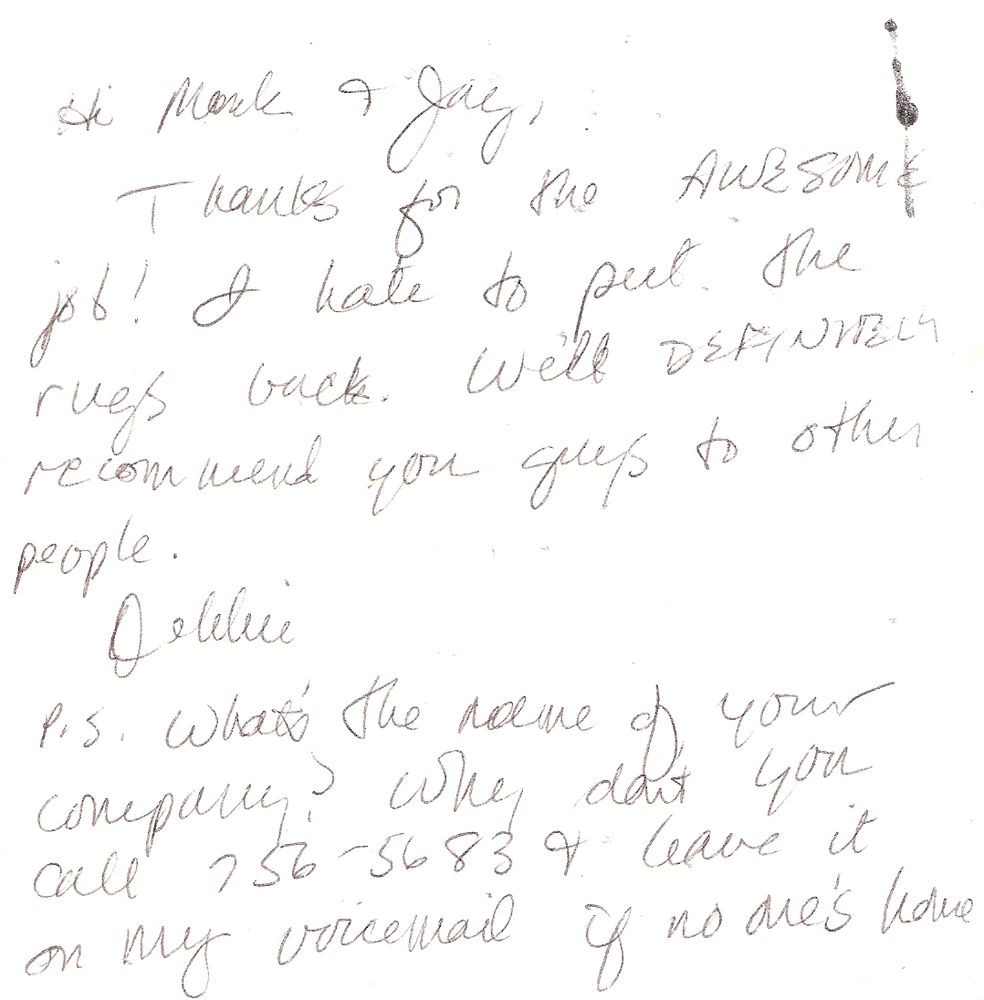 Hi Mark & Jay,
Thanks for the AWESOME
job! I hate to put the
rugs back. We'll DEFINITELY
recommend you guys to other
people.
Debbie
P.S. What's the name of your
company? Why don't you
call 756-5683 & leave it
on my voicemail if no one's home